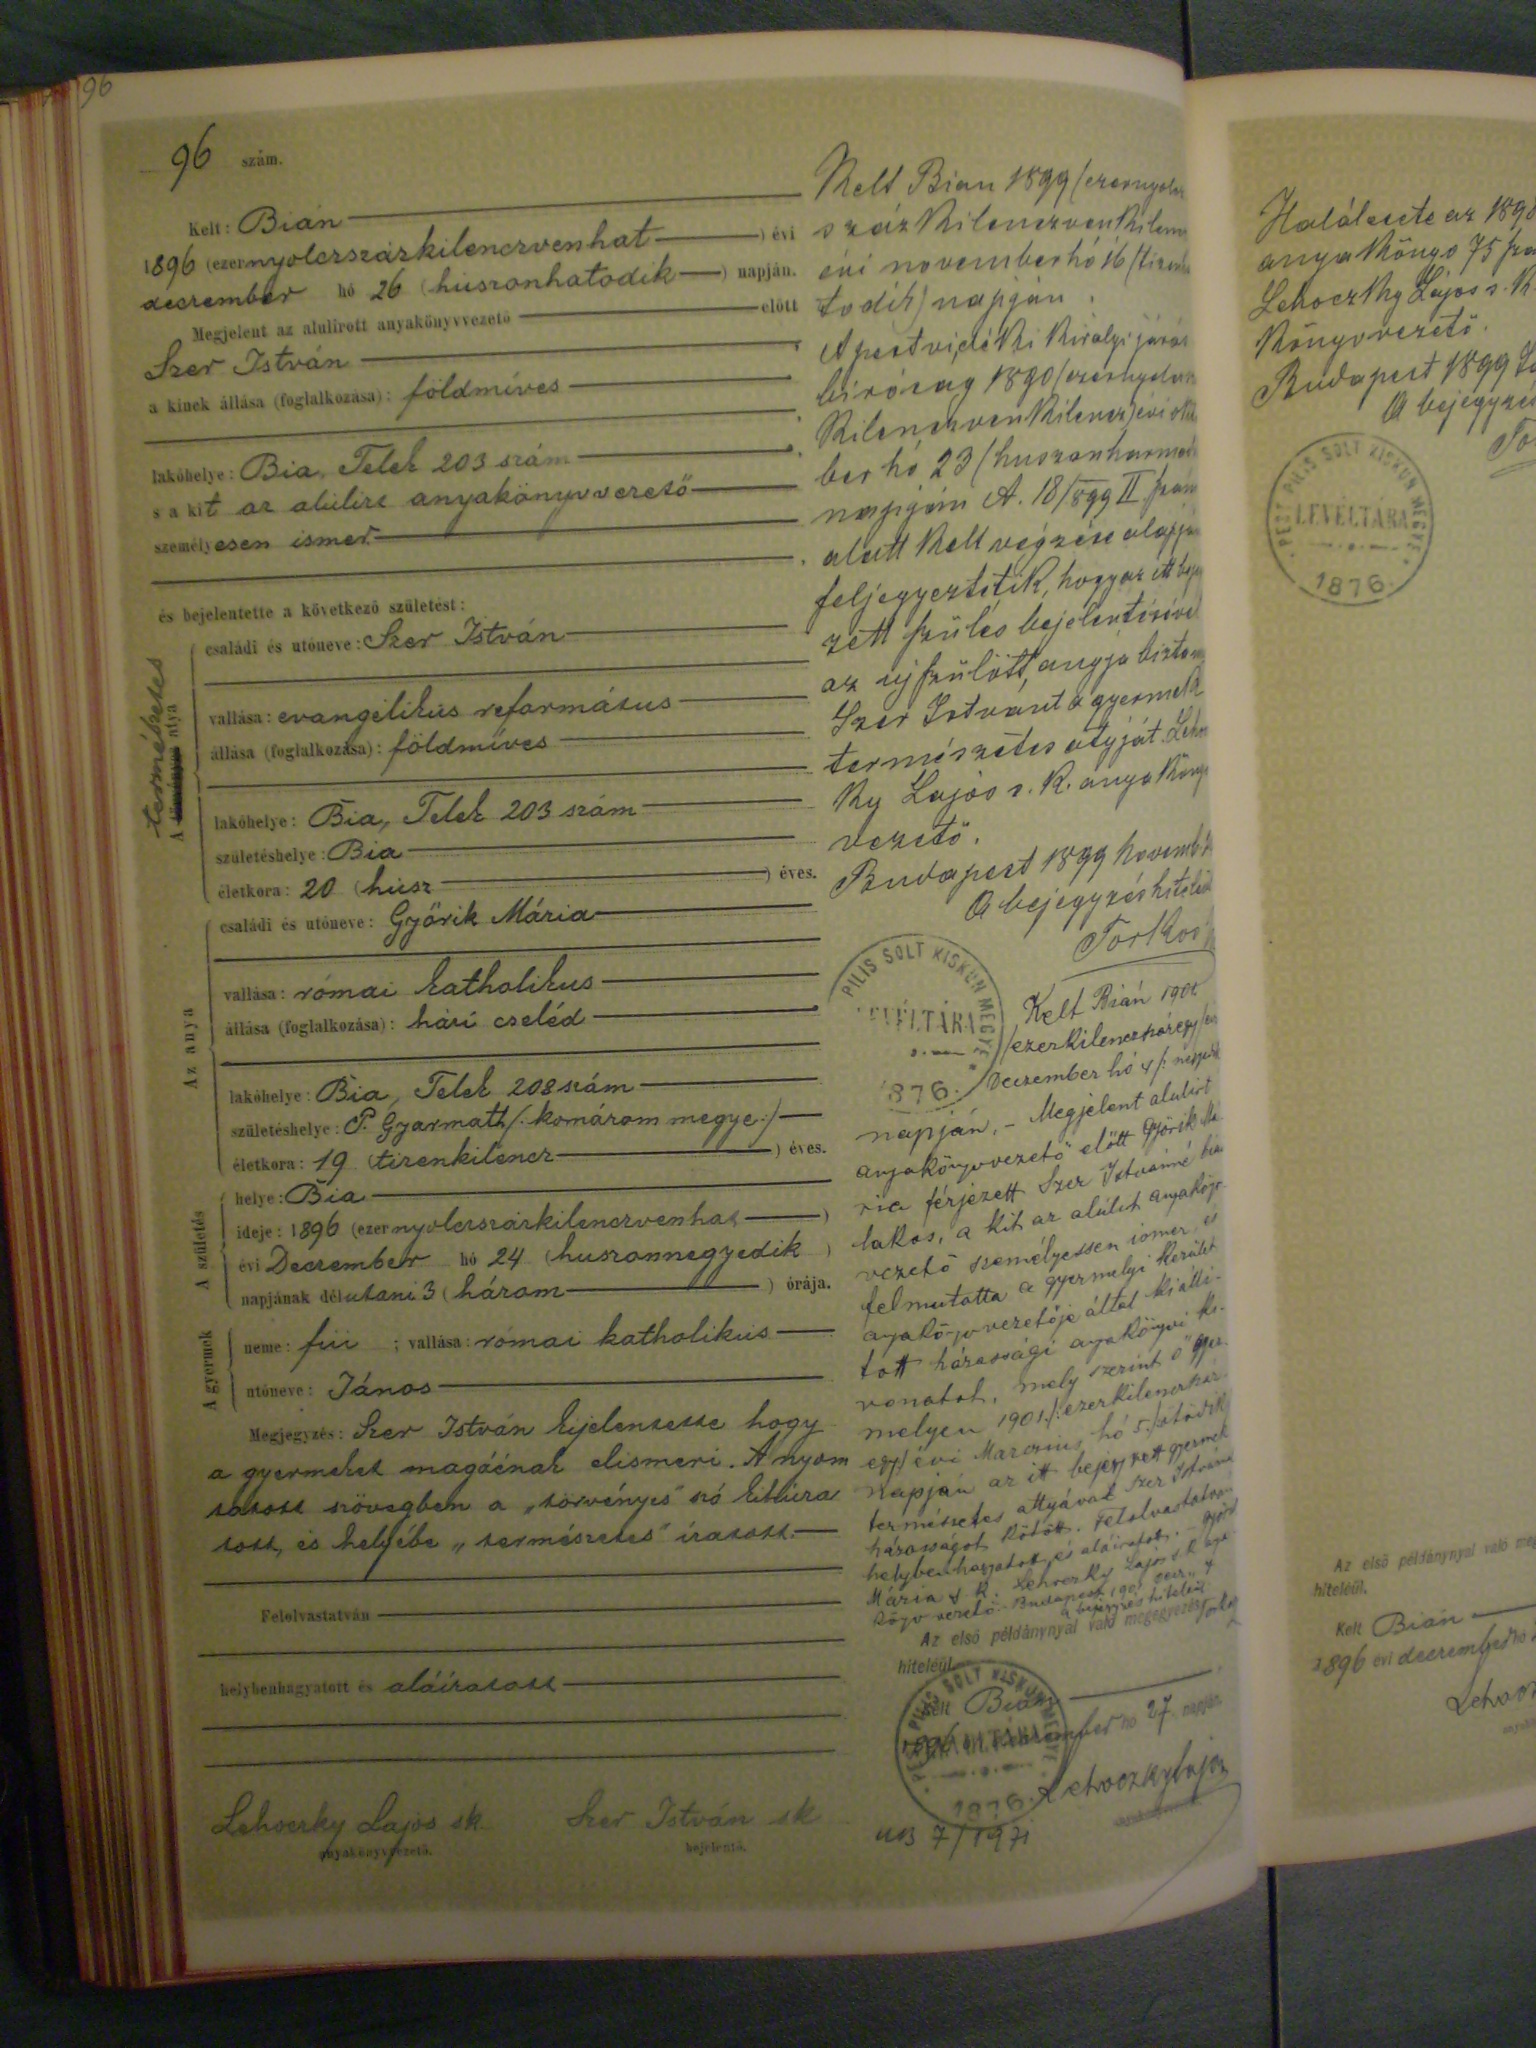 96
96 szám.
Kelt: Bián
1896 (ezernyolczszázkilenczvenhat ) évi
deczember hó 26 (huszonhatodik ) napján.
Megjelent az alulírott anyakönyvvezető előtt
Szer István
a kinek állása (foglalkozása): földmíves
lakóhelye: Bia, Telek 203 szám
s a kit az alulírt anyakönyvvezető
személyesen ismer.
és bejelentette a következő születést:
A természetes atya
családi és utóneve: Szer István
vallása: evangélikus református
állása (foglalkozása): földmíves
lakóhelye: Bia, Telek 203 szám
születéshelye: Bia
életkora: 20 (húsz ) éves.
Az anya
családi és utóneve: Győrik Mária
vallása: római katholikus
állása (foglalkozása): házi cseléd
lakóhelye: Bia, Telek 208 szám
születéshelye: P. Gyarmath /: komárom megye :/
életkora: 19 (tizenkilencz ) éves.
A születés
helye: Bia
ideje: 1896 (ezernyolczszázkilenczvenhat )
évi Deczember hó 24 (huszonnegyedik )
napjának délutáni 3 (három ) órája.
A gyermek
neme: fiú ; vallása: római katholikus
utóneve: János
Megjegyzés: Szer István kijelentette hogy
a gyermeket magáénak elismeri. A nyom
tatott szövegben a „törvényes" szó kihúza
tott, és helyébe „természetes" íratott.
Felolvastatván
helybenhagyatott és aláíratott
Lehoczky Lajos sk Szer István sk
anyakönyvvezető. bejelentő.
Kelt Bian 1899 (ezernyolcz
száz Kilenczven Kilencz
évi november hó 16 (tizenha
todik) napján.
A pestvidéki Királyi járás
biróság 1890 (ezernyolcz
Kilenczven Kilencz) évi októ
ber hó 23 (huszonharmadik
napján A. 18/899 II. szám
alatt Kelt végzése alapján
feljegyeztetik, hogy az itt bejegy
zett szülés bejelentésével
az újszülött anyja
Szer Istvánt a gyermek
természetes atyját. Lehocz
ky Lajos s. K. anyaköny
vezető.
Budapest 1899 novemb
A bejegyzés hiteléül
Torkos
PILIS SOLT KISKUN MEGYE
LEVÉLTÁRA
1876.
Kelt Bián 1901
/ezerkilenczszázegy/ évi
Deczember hó 4 /: negyedik
napján. - Megjelent alulírt
anyakönyvvezető előtt Győrik Má
ria férjezett Szer Istvánné biai
lakos, a kit az alúlirt anyaköny
vezető személyessen ismer, és
felmutatta a gyermelyi kerület
anyakönyvvezetője által kiálli-
tott házassági anyakönyvi ki-
vonatot, mely szerint ő Gyer-
melyen 1901./: ezerkilenczszáz
egy/ évi Marczius hó 5./ötödik
napján az itt bejegyzett gyermek
természetes attyával Szer Istvánnal
házasságot kötött. Felolvastatván
helybenhagyatott és aláíratott. - Győrik
Mária s. k. Lehoczky Lajos s. k. anya
könyvvezető. Budapest 1901 decz. 4
A bejegyzés hiteléül Torkos
Az első példánynyal való megegyezés
hiteléül.
Kelt Bián
1896 évi deczember hó 27. napján
PEST PILIS SOLT KISKUN MEGYE
LEVÉLTÁRA
1876.
Lehoczky Lajos
anyakönyvvezető.
7/1971
Halálesete az 1898
anyakönyv 75 szá
Lehoczky Lajos s. k.
Könyvvezető.
Budapest 1899
A bejegyzés
To
PEST PILIS SOLT KISKUN MEGYE
LEVÉLTÁRA
1876.
Az első példánynyal való meg
hiteléül.
Kelt Bián
1896 évi deczember hó
Lehocz